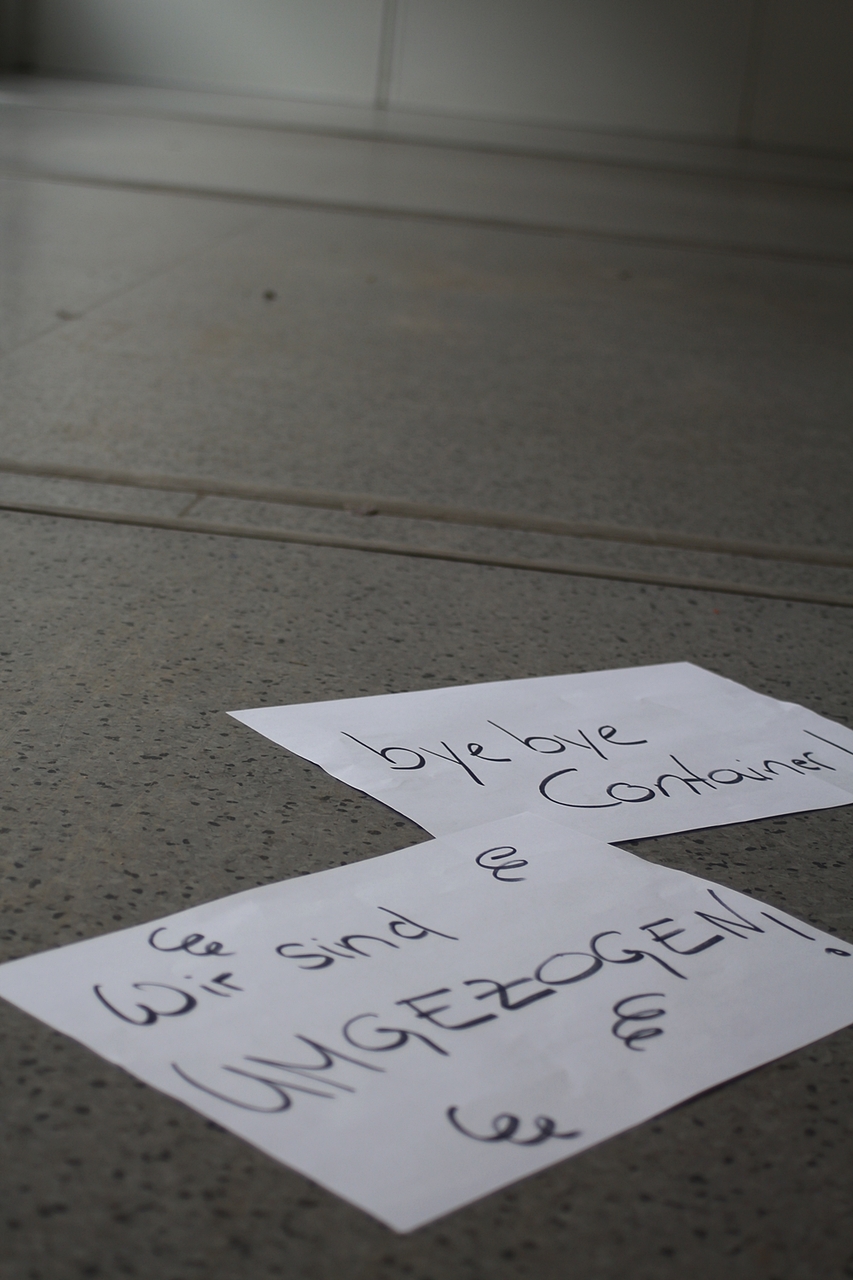 bye bye
Container!
Wir sind
UMGEZOGEN!